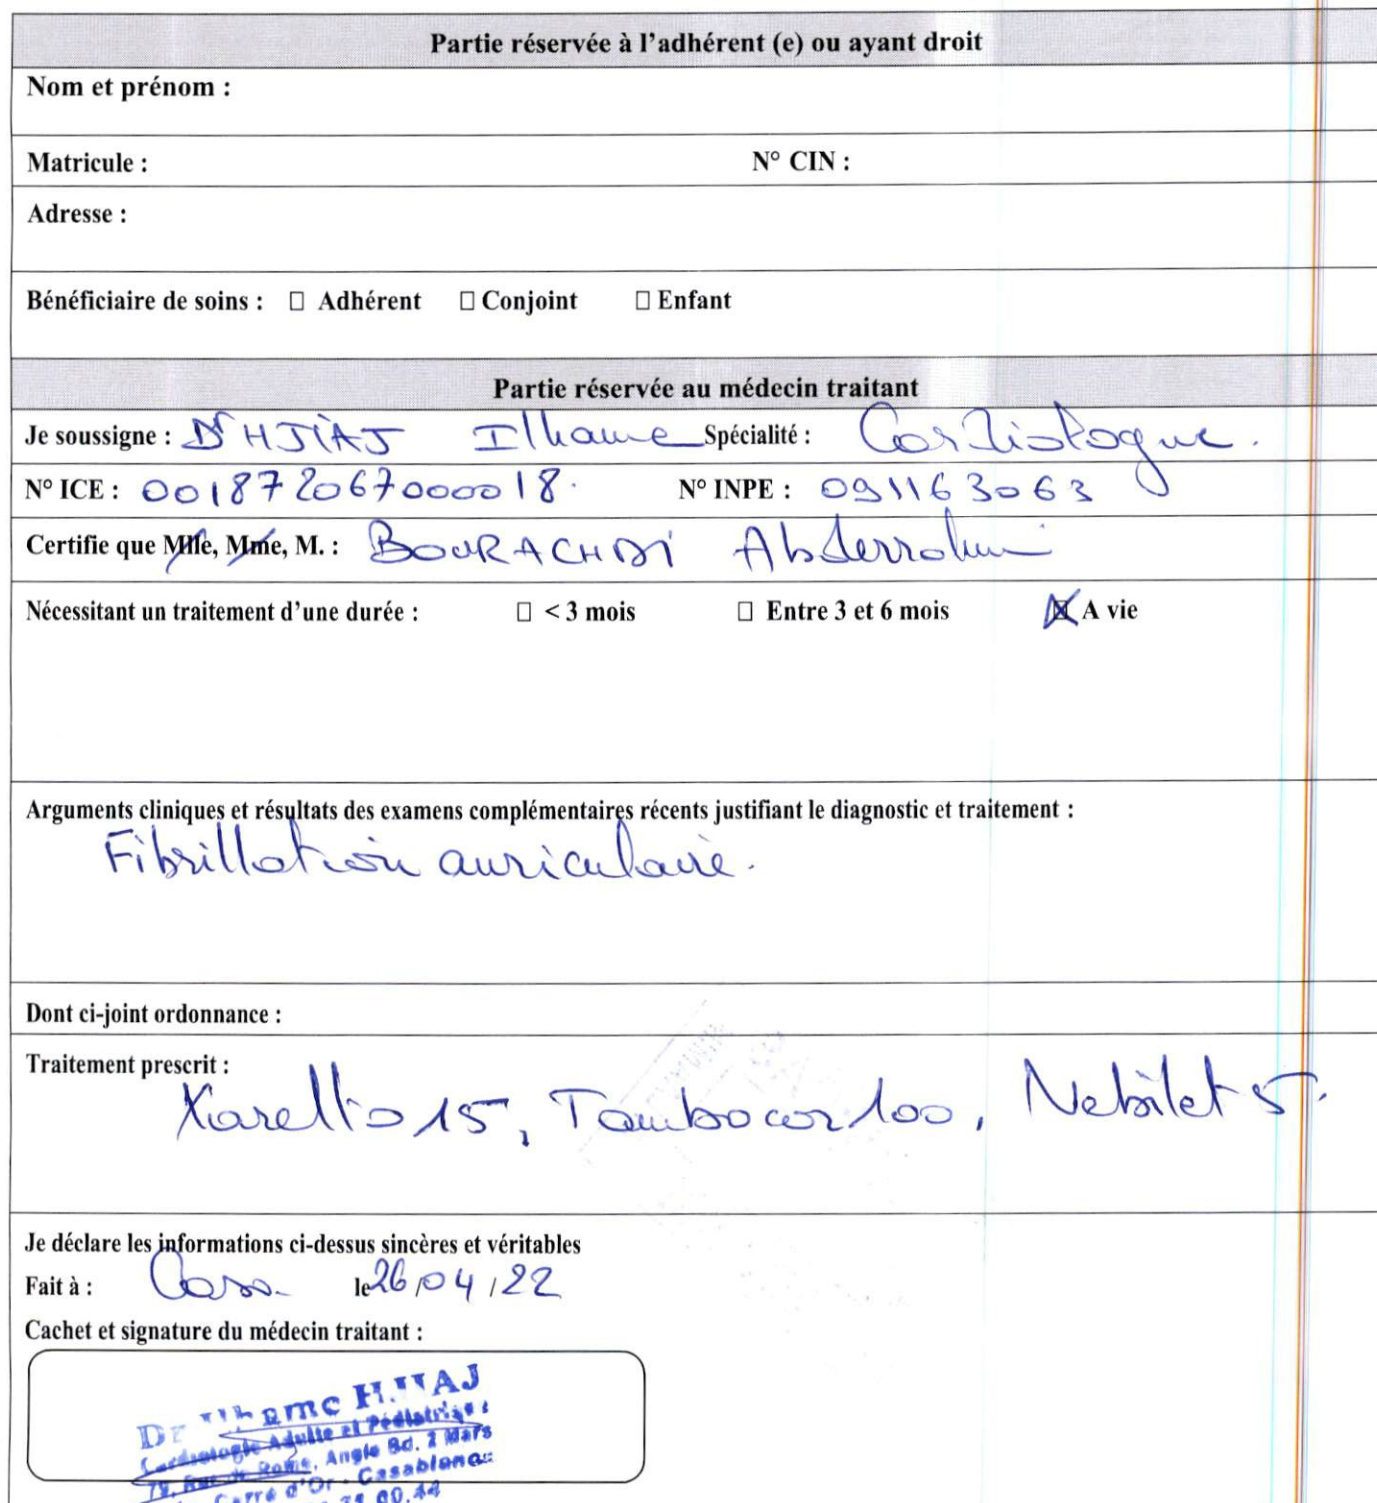 Partie réservée à l'adhérent (e) ou ayant droit
Nom et prénom :
Matricule : N° CIN :
Adresse :
Bénéficiaire de soins : ☐ Adhérent ☐ Conjoint ☐ Enfant
Partie réservée au médecin traitant
Je soussigne : Dr HJIAJ Ilhame Spécialité : Cardiologue.
N° ICE : 001872067000018. N° INPE : 091163063
Certifie que Mlle, Mme, M. : BOURACHDI Abderrahim
Nécessitant un traitement d'une durée : ☐ < 3 mois ☐ Entre 3 et 6 mois ☒ A vie
Arguments cliniques et résultats des examens complémentaires récents justifiant le diagnostic et traitement :
Fibrillation auriculaire.
Dont ci-joint ordonnance :
Traitement prescrit :
Xarelto 15, Tambocor 100, Nebilet 5.
Je déclare les informations ci-dessus sincères et véritables
Fait à : Casa. le 26/04/22
Cachet et signature du médecin traitant :
Dr Ilhame HJIAJ
Cardiologie Adulte et Pédiatrique
79, Rue de Rome, Angle Bd. 2 Mars
Carré d'Or - Casablanca